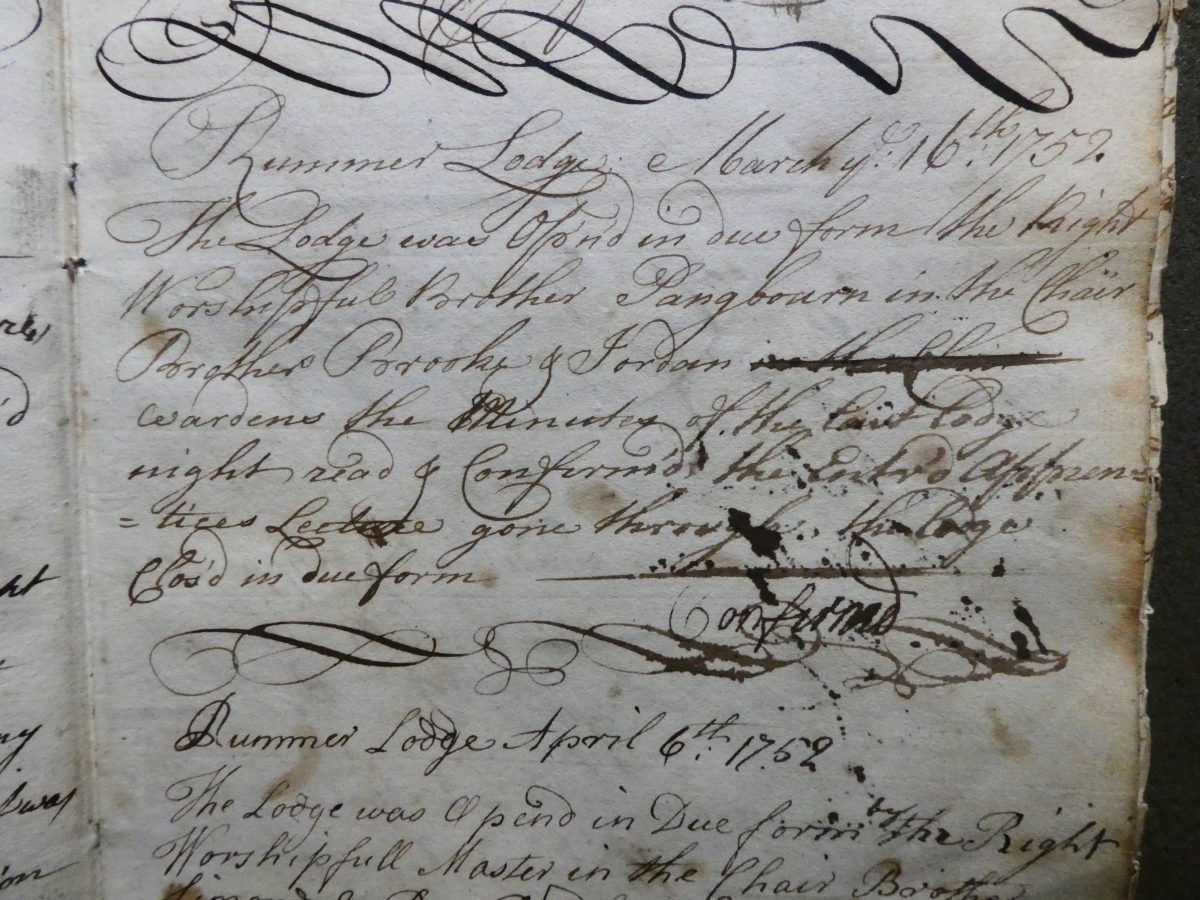 Rummer Lodge March yᵉ 16th. 1752.
The Lodge was Op'nd in due form the Right
Worshipful Brother Pangbourn in the Chair
Brother Brooks & Jordan in the Chair
wardens the Minutes of the last Lodge
night read & Confirm'd the Entr'd Appren=
=tices Lecture gone through, the Lodge
Clos'd in due form
Confirmd
Rummer Lodge April 6th. 1752
The Lodge was Opend in Due form by the Right
Worshipfull Master in the Chair Brother